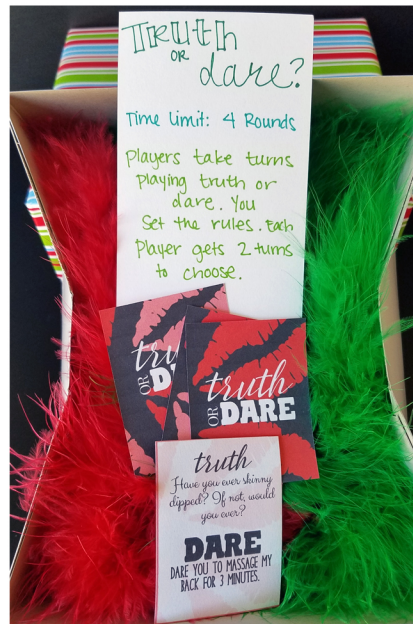 TRUTH
OR
dare?
Time Limit: 4 Rounds
Players take turns
Playing truth or
dare. You
Set the rules. Each
Player gets 2 turns
to choose.
tru
OR D
truth
OR DARE
truth
Have you ever skinny
dipped? If not, would
you ever?
DARE
DARE YOU TO MASSAGE MY
BACK FOR 3 MINUTES.